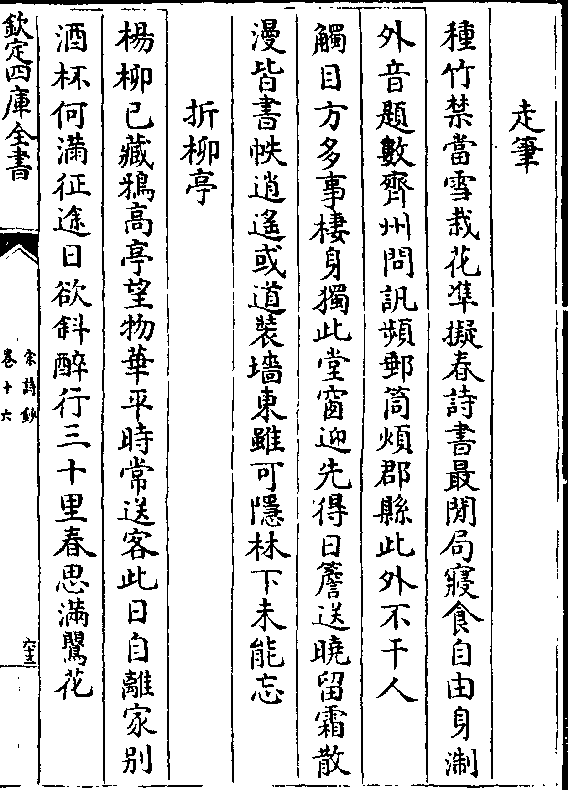 走筆
種竹禁當雪栽花準擬春詩書最閒局寢食自由身淛
外音題數齊州問訊頻郵筒煩郡縣此外不干人
觸目方多事棲身獨此堂窗迎先得日簷送曉留霜散
漫皆書帙逍遙或道裝墻東雖可隱林下未能忘
折柳亭
楊柳已藏鴉高亭望物華平時常送客此日自離家别
酒杯何滿征途日欲斜醉行三十里春思滿鶯花
欽定四庫全書
宋詩鈔
卷十六